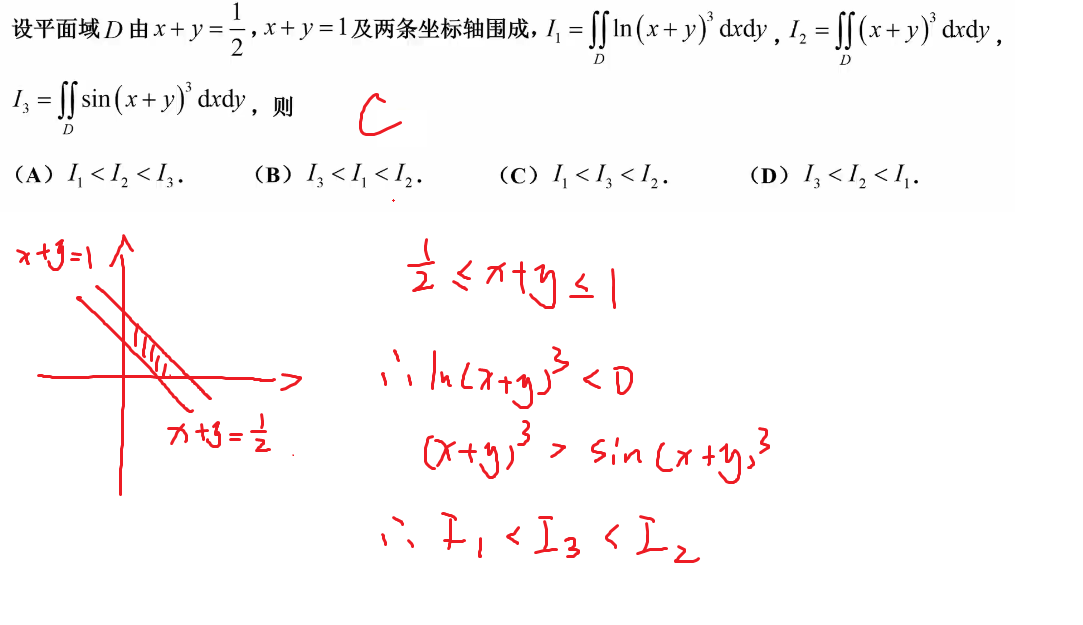 设平面域 D 由 x + y = 1/2, x + y = 1 及两条坐标轴围成, I₁ = ∬_D ln(x + y)³ dxdy, I₂ = ∬_D (x + y)³ dxdy,
I₃ = ∬_D sin(x + y)³ dxdy, 则 C
(A) I₁ < I₂ < I₃. (B) I₃ < I₁ < I₂. (C) I₁ < I₃ < I₂. (D) I₃ < I₂ < I₁.
x+y=1
x+y=1/2
1/2 ≤ x+y ≤ 1
∴ ln(x+y)³ < 0
(x+y)³ > sin(x+y)³
∴ I₁ < I₃ < I₂